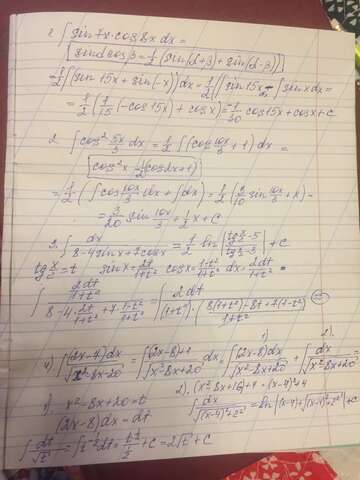 1. ∫ sin 7x · cos 8x dx =
[sin α cos β = 1/2 (sin(α+β) + sin(α-β))]
= 1/2 ∫ (sin 15x + sin(-x)) dx = 1/2 (∫ sin 15x - ∫ sin x dx =
= 1/2 (1/15 (-cos 15x) + cos x) = -1/30 cos 15x + cos x + C
2. ∫ cos² 5x/3 dx = 1/2 ∫ (cos 10x/3 + 1) dx =
[cos² x = 1/2 (cos 2x + 1)]
= 1/2 (∫ cos 10x/3 dx + ∫ dx = 1/2 (3/10 sin 10x/3 + x) -
= 3/20 sin 10x/3 + 1/2 x + C
3. ∫ dx / (8 - 4 sin x + 7 cos x) = 1/2 ln |(tg x/2 - 5) / (tg x/2 - 3)| + C
tg x/2 = t sin x = 2t/(1+t²) cos x = (1-t²)/(1+t²) dx = 2dt/(1+t²) =
∫ (2dt/(1+t²)) / (8 - 4 · 2t/(1+t²) + 7 · (1-t²)/(1+t²)) = ∫ 2dt / ((1+t²) · (8(1+t²) - 8t + 7(1-t²))/(1+t²)) =
1) 2).
4) ∫ (2x-7)dx / √(x²-8x+20) = ∫ ((2x-8)+1) / √(x²-8x+20) dx = ∫ (2x-8)dx / √(x²-8x+20) + ∫ dx / √(x²-8x+20) =
1) x² - 8x + 20 = t 2). (x² - 8x + 16) + 4 = (x-4)² + 4
(2x-8)dx = dt ∫ dx / √((x-4)²+2²) = ln |(x-4) + √((x-4)²+2²)| + C
∫ dt/√t = ∫ t^(-1/2) dt = t^(1/2) / (1/2) + C = 2√t + C